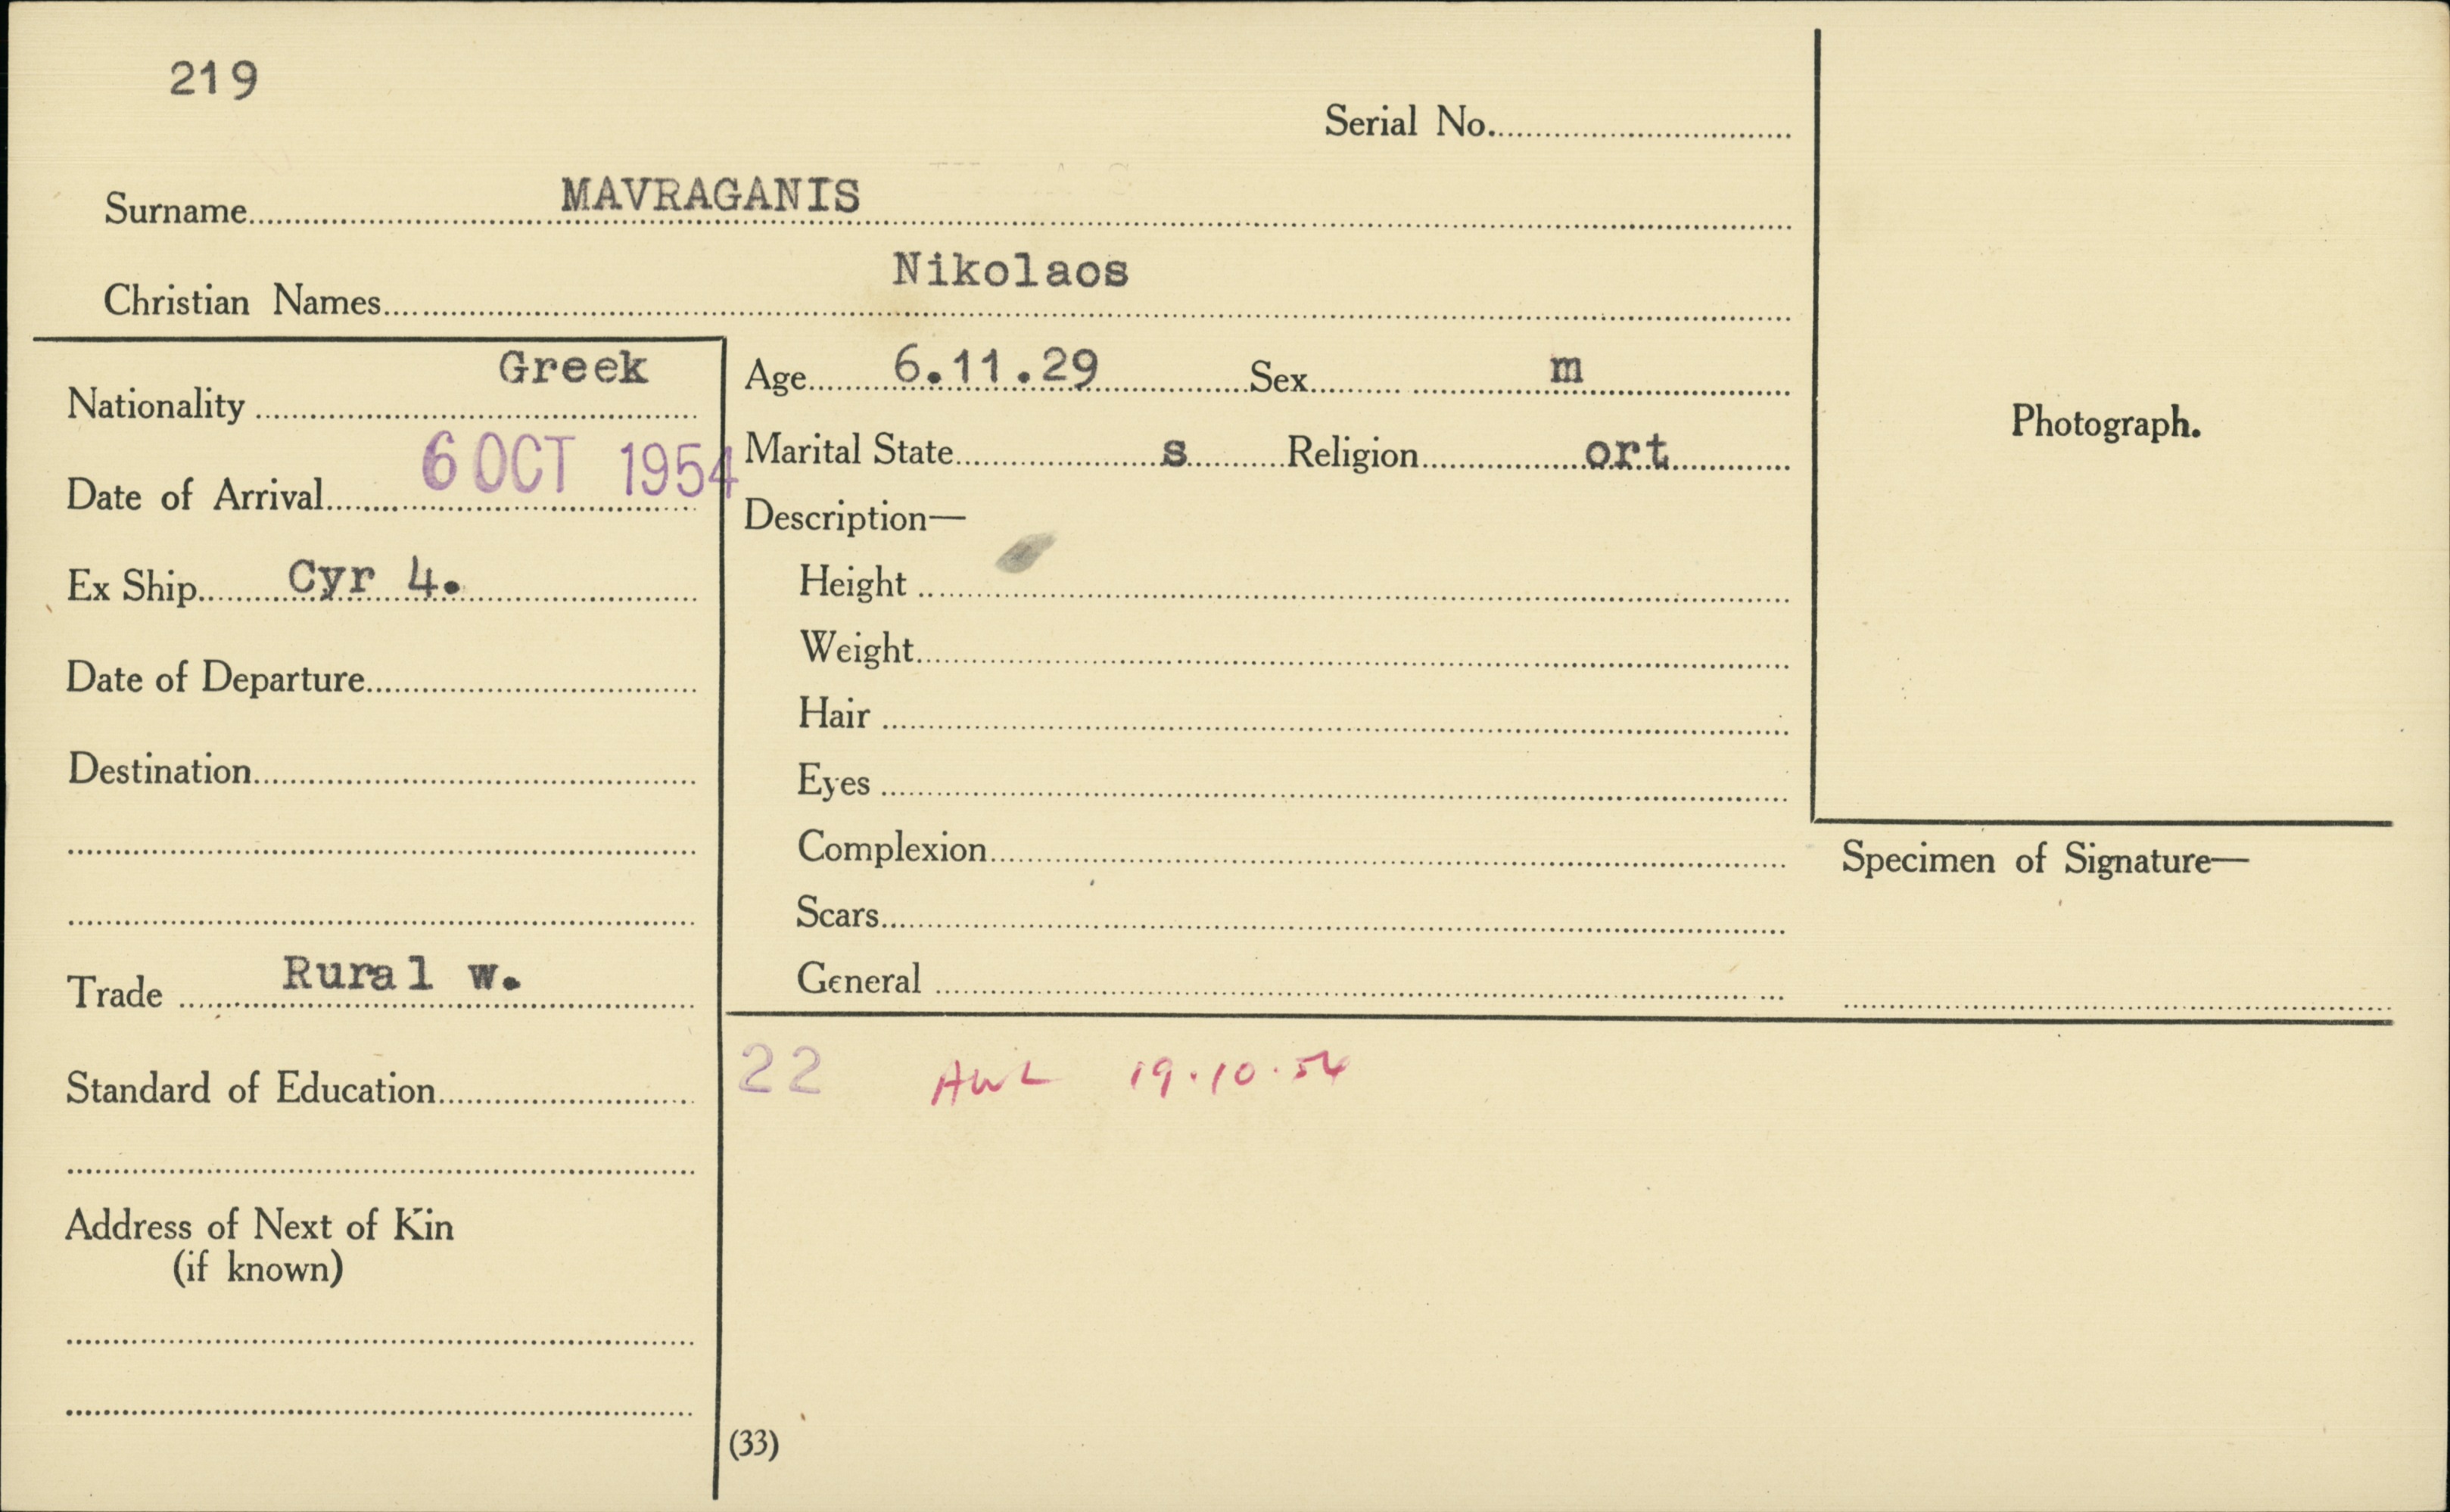 219
Serial No.
Surname MAVRAGANIS
Christian Names Nikolaos
Nationality Greek
Date of Arrival 6 OCT 1954
Ex Ship Cyr 4.
Date of Departure
Destination
Trade Rural w.
Standard of Education
Address of Next of Kin
(if known)
Age 6.11.29 Sex m
Marital State s Religion ort
Description—
Height
Weight
Hair
Eyes
Complexion
Scars
General
Photograph.
Specimen of Signature—
22 AWL 19.10.54
(33)